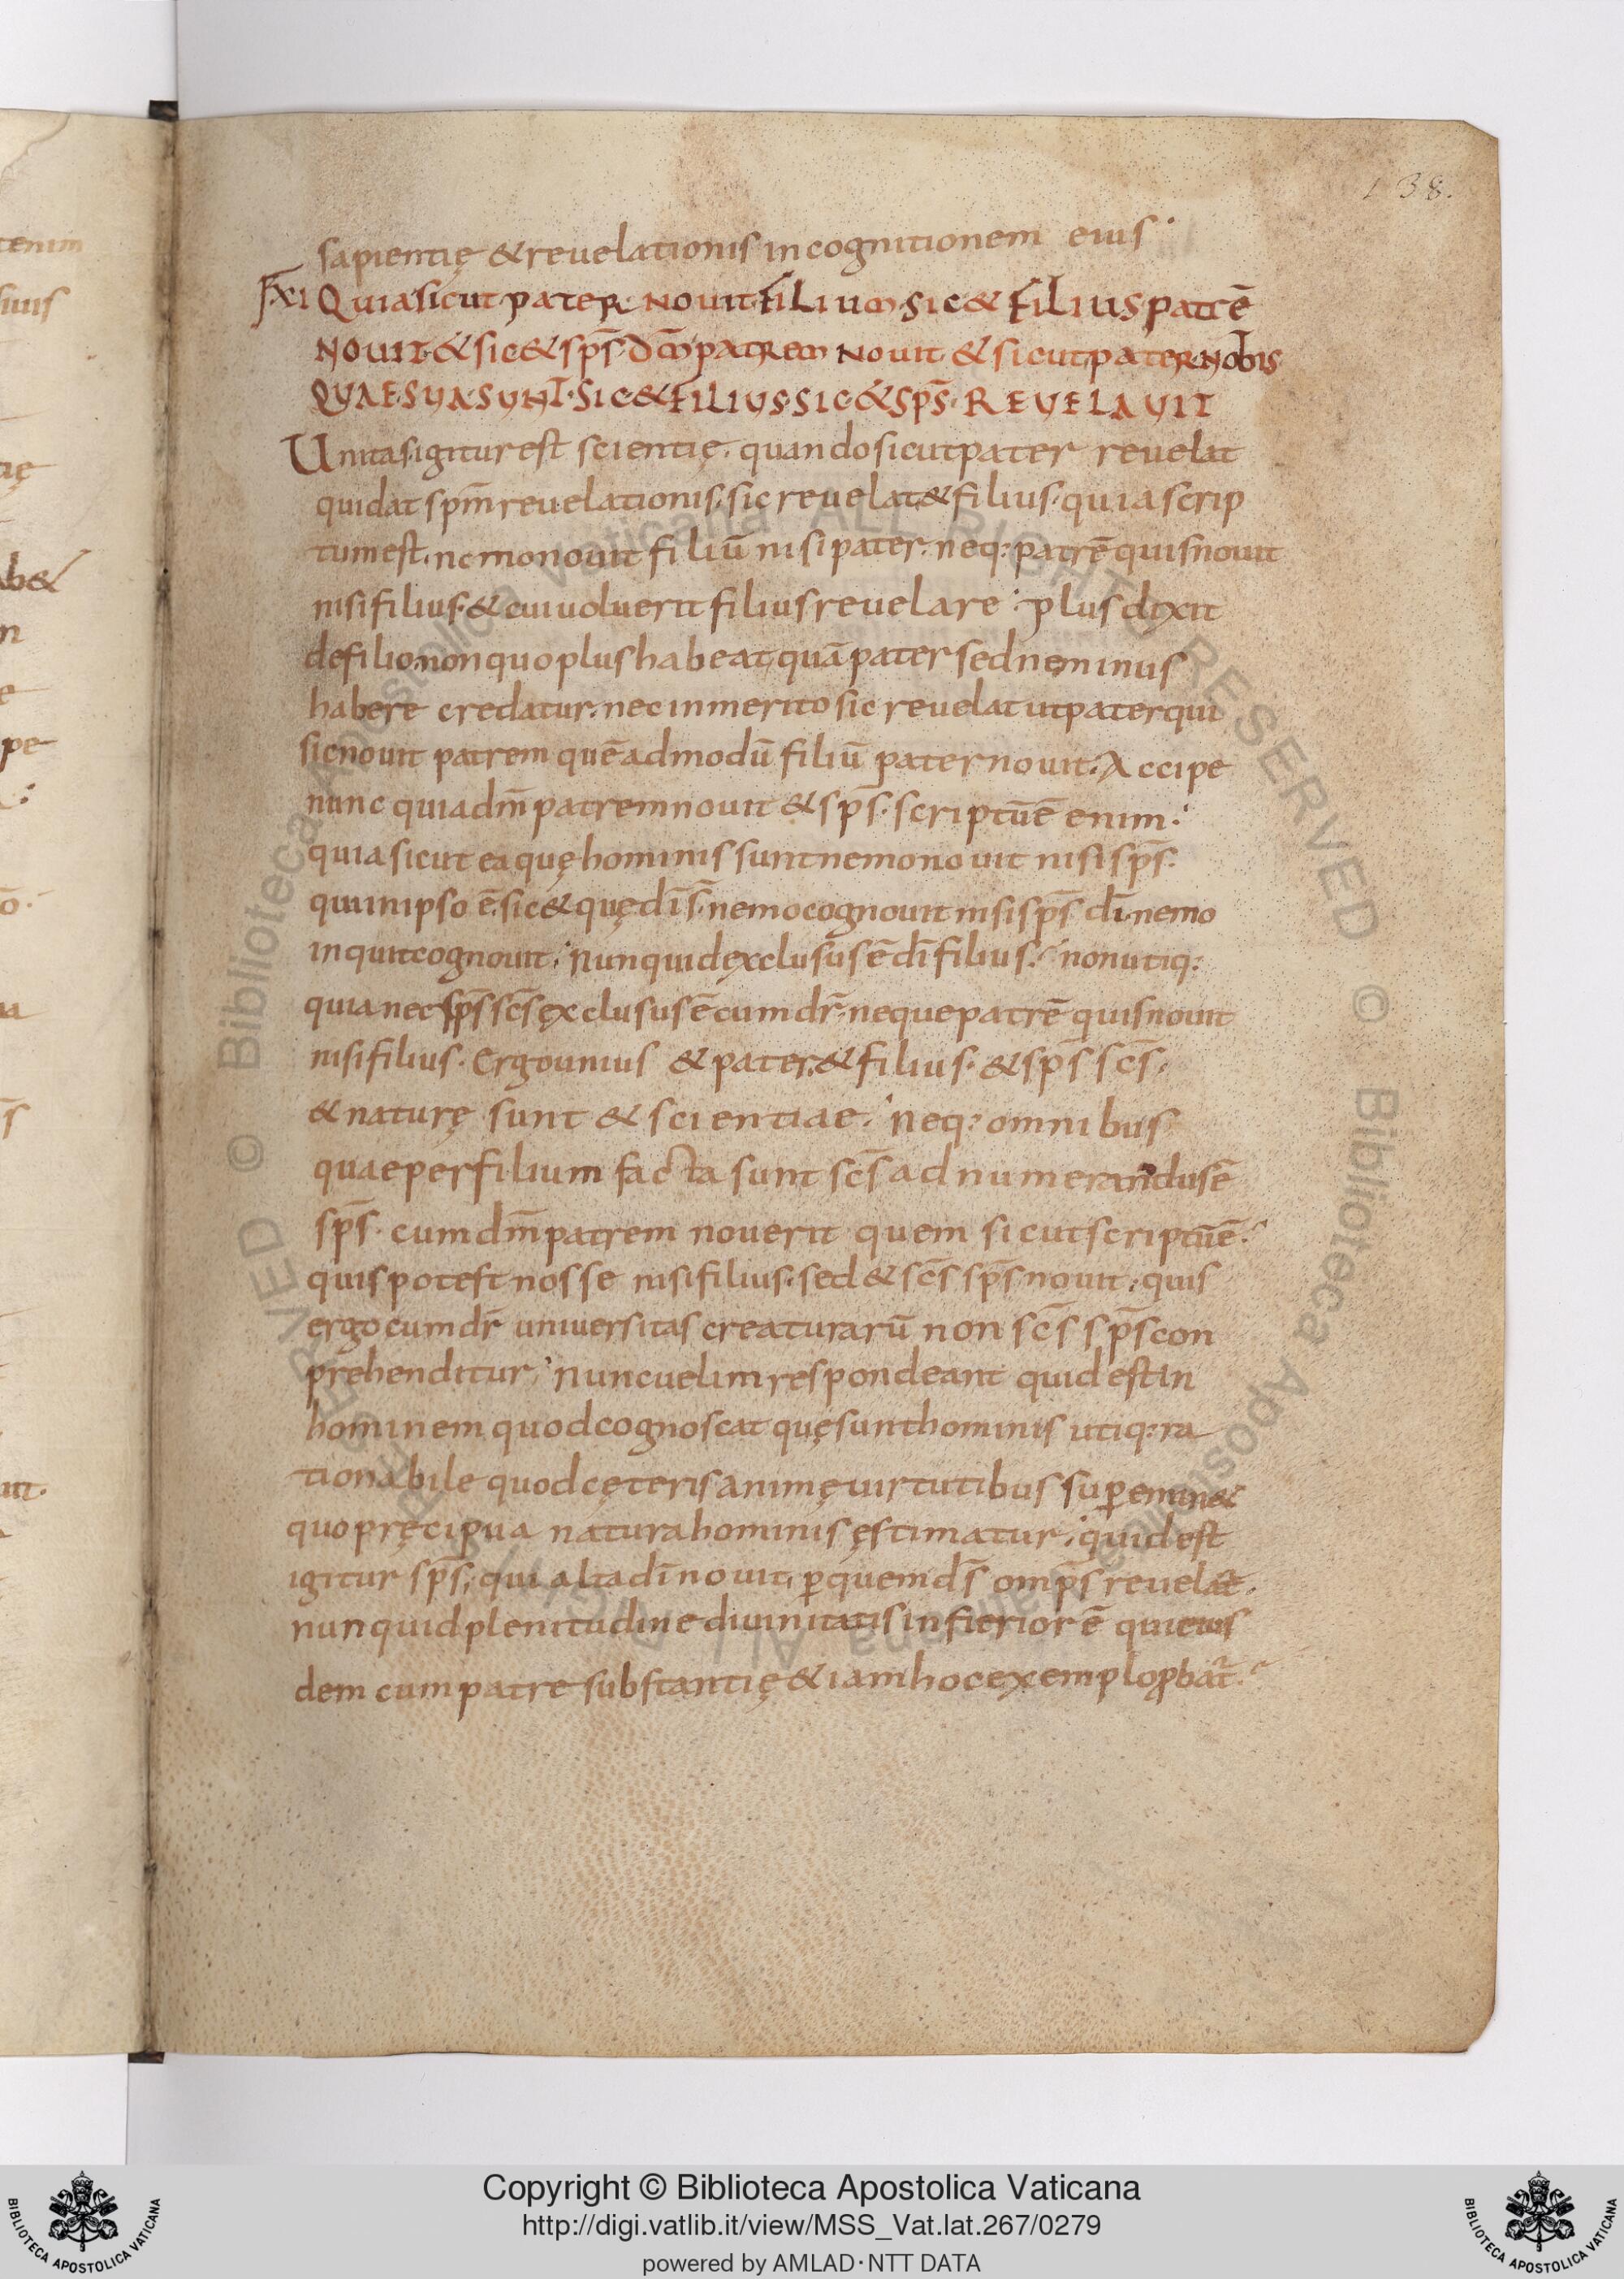 138.
sapientię & reuelationis in cognitionem eius
XI Quia sicut pater nouit filium sic & filius patrē
nouit & sic & sp̄s dm̄ patrem nouit & sicut pater nobis
quae sua sunt sic & filius sic & sp̄s reuelauit
Unitas igitur est scientię. quando sicut pater reuelat
qui dat spm̄ reuelationis. sic reuelat & filius. quia scrip
tum est. nemo nouit filiū nisi pater. neq: patrē quis nouit
nisi filius. & cui uoluerit filius reuelare. plus dixit
de filio. non quo plus habeat quā pater sed ne minus
habere credatur. nec inmerito sic reuelat ut pater qui
sic nouit patrem quēadmodū filiū pater nouit. Accipe
nunc quia dm̄ patrem nouit & sp̄s. scriptū ē enim.
quia sicut ea quę hominis sunt nemo nouit nisi sp̄s.
qui in ipso ē. sic & quę dī s̄. nemo cognouit nisi sp̄s dī. nemo
inquit cognouit. Nunquid exclusus ē dī filius. non utiq:
quia nec sp̄s sc̄s exclusus ē cum dr̄. neque patrē quis nouit
nisi filius. Ergo unius & pater. & filius. & sp̄s sc̄s.
& naturę sunt & scientiae. Neq: omnibus
quae per filium facta sunt sc̄s adnumerandus ē
sp̄s. cum dm̄ patrem nouerit quem sicut scriptū ē.
quis potest nosse nisi filius. sed & sc̄s sp̄s nouit. quis
ergo cum dr̄ uniuersitas creaturarū non sc̄s sp̄s con
prehenditur. Nunc uelim respondeant quid est in
hominem quod cognoscat quę sunt hominis utiq: ra
tionabile quod cęteris animę uirtutibus suꝑemin&
quo pręcipua natura hominis ęstimatur. quid est
igitur sp̄s. qui alta dī nouit. ꝑ quem ds̄ omp̄s reuelat.
nunquid plenitudine diuinitatis infierior ē qui eius
dem cum patre substantię &iam hoc exemplo ꝓbat̄.
tenim
tię
b&
n
e
pe
ō.
s̄
ut.
© Biblioteca Apostolica Vaticana ALL RIGHTS RESERVED © Biblioteca Apostolica Vaticana ALL RIGHTS RESERVED
BIBLIOTECA APOSTOLICA VATICANA
Copyright © Biblioteca Apostolica Vaticana
http://digi.vatlib.it/view/MSS_Vat.lat.267/0279
powered by AMLAD · NTT DATA
BIBLIOTECA APOSTOLICA VATICANA